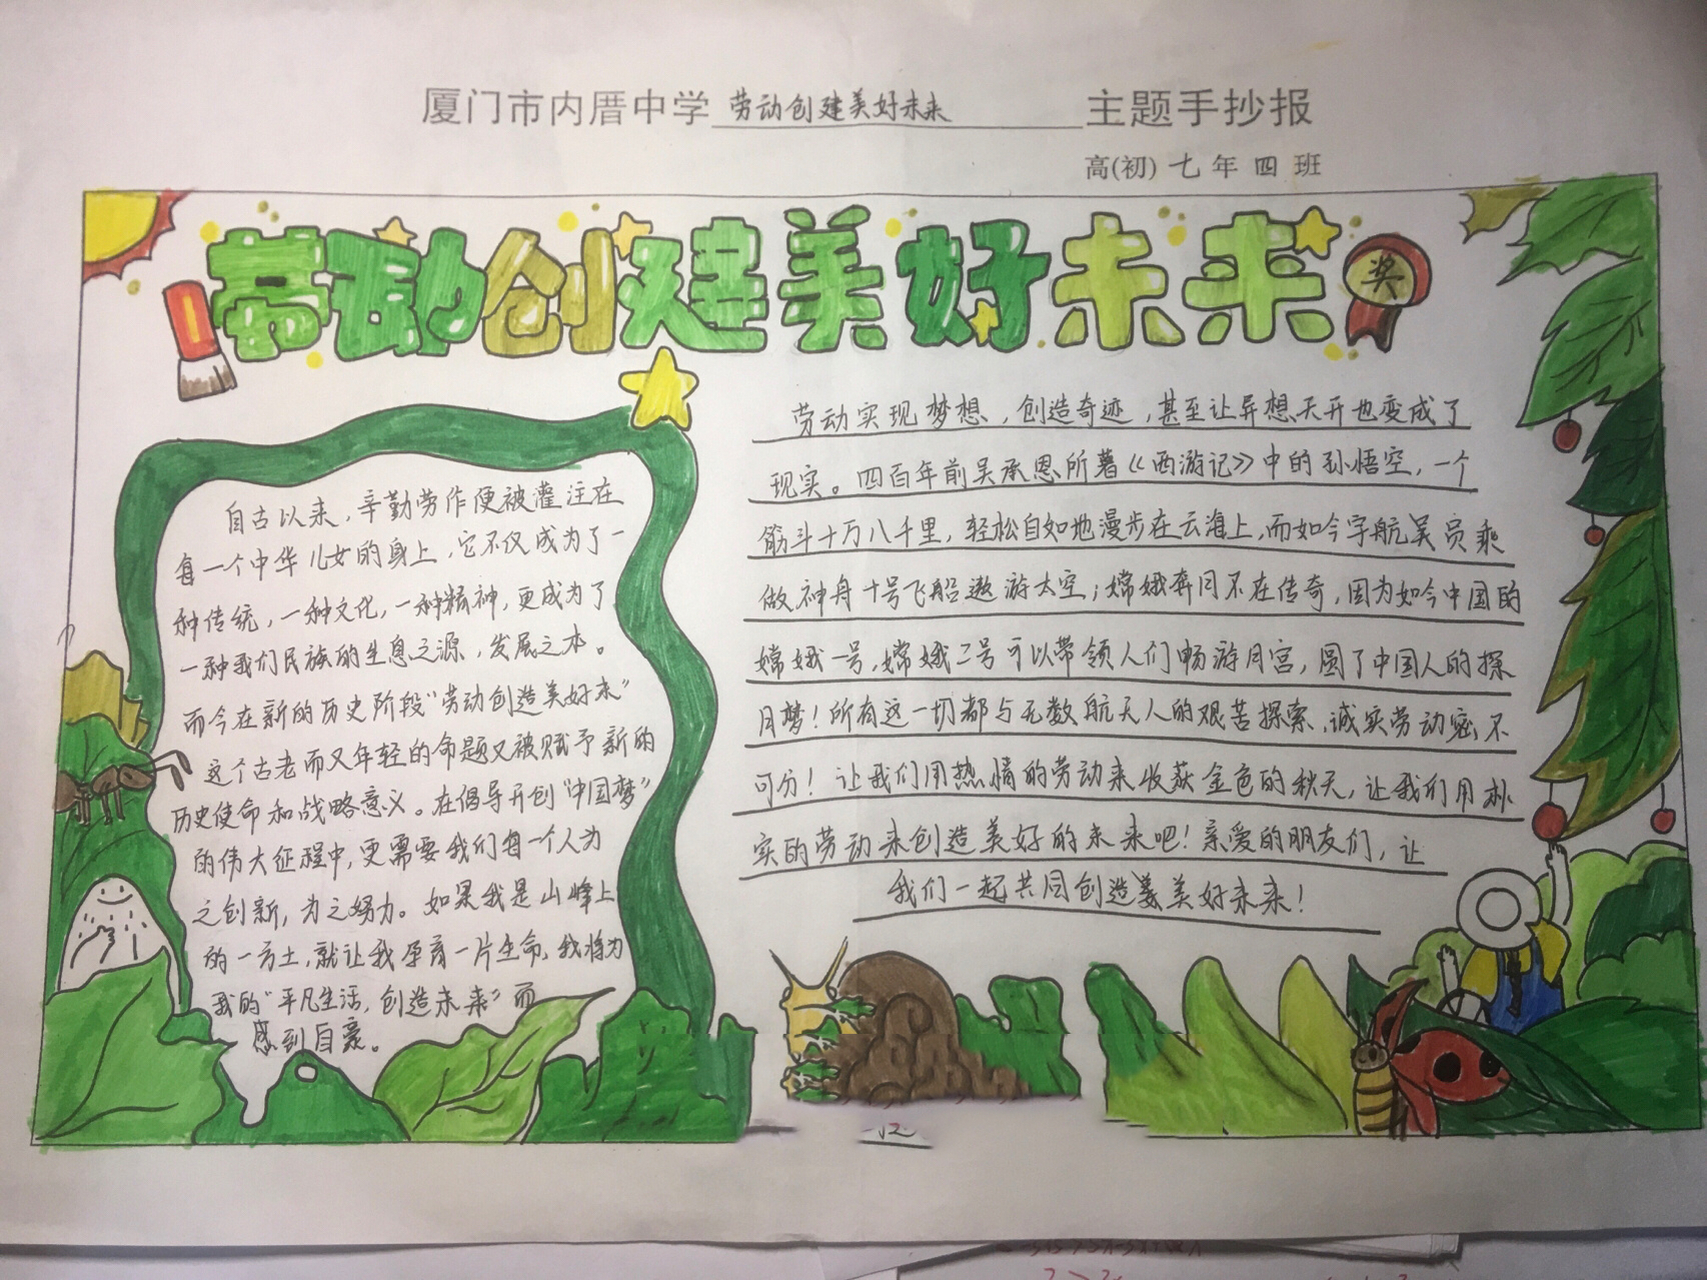 厦门市内厝中学 劳动创建美好未来 主题手抄报
高(初) 七 年 四 班
劳动创建美好未来
奖
自古以来，辛勤劳作便被灌注在
每一个中华儿女的身上，它不仅成为了一
种传统，一种文化，一种精神，更成为了
一种我们民族的生息之源，发展之本。
而今在新的历史阶段“劳动创造美好未”
这个古老而又年轻的命题又被赋予新的
历史使命和战略意义。在倡导开创“中国梦”
的伟大征程中，更需要我们每一个人为
之创新，为之努力。如果我是山峰上
的一方土，就让我孕育一片生命，我将为
我的“平凡生活，创造未来”而
感到自豪。
劳动实现梦想，创造奇迹，甚至让异想天开也变成了
现实。四百年前吴承恩所著《西游记》中的孙悟空，一个
筋斗十万八千里，轻松自如地漫步在云海上，而如今宇航员乘
做神舟十号飞船遨游太空；嫦娥奔月不在传奇，因为如今中国的
嫦娥一号，嫦娥二号可以带领人们畅游月宫，圆了中国人的探
月梦！所有这一切都与无数航天人的艰苦探索、诚实劳动密不
可分！让我们用热情的劳动来收获金色的秋天，让我们用朴
实的劳动来创造美好的未来吧！亲爱的朋友们，让
我们一起共同创造美好未来！